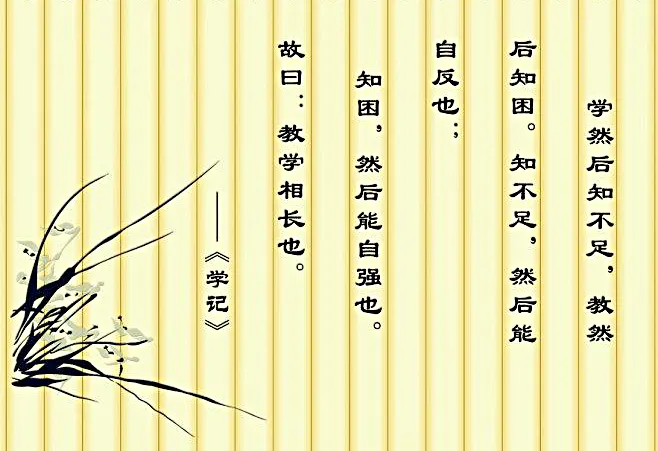 学然后知不足，教然
后知困。知不足，然后能
自反也；
知困，然后能自强也。
故曰：教学相长也。
——《学记》